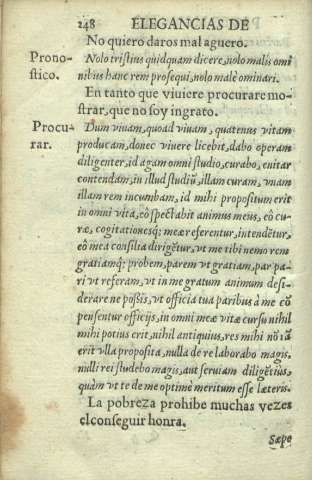 248 ELEGANCIAS DE
No quiero daros mal aguero.
Prono-
stico.
Nolo tristius quidquam dicere, nolo malis omi
nibus hanc rem prosequi, nolo malè ominari.
En tanto que viuiere procurare mo-
strar, que no soy ingrato.
Procu-
rar.
Dum viuam, quoad viuam, quatenus vitam
producam, donec viuere licebit, dabo operam
diligenter, id agam omni studio, curabo, enitar
contendam, in illud studiũ, illam curam, vnam
illam rem incumbam, id mihi propositum erit
in omni vita, eò spectabit animus meus, eò cu-
ræ, cogitationesq; meæ referentur, intendẽtur,
eò mea consilia dirigẽtur, vt me tibi nemo rem
gratiamq; probem, parem vt gratiam, par pa-
ri vt referam, vt in me gratum animum desi-
derare ne possis, vt officia tua paribus à me cõ
pensentur officijs, in omni meæ vitæ cursu nihil
mihi potius erit, nihil antiquius, res mihi nõ
erit vlla proposita, nulla de re laborabo magis,
nulli rei studebo magis, aut seruiam diligẽtius,
quàm vt te de me optimè meritum esse læteris.
La pobreza prohibe muchas vezes
el conseguir honra.
Sæpe